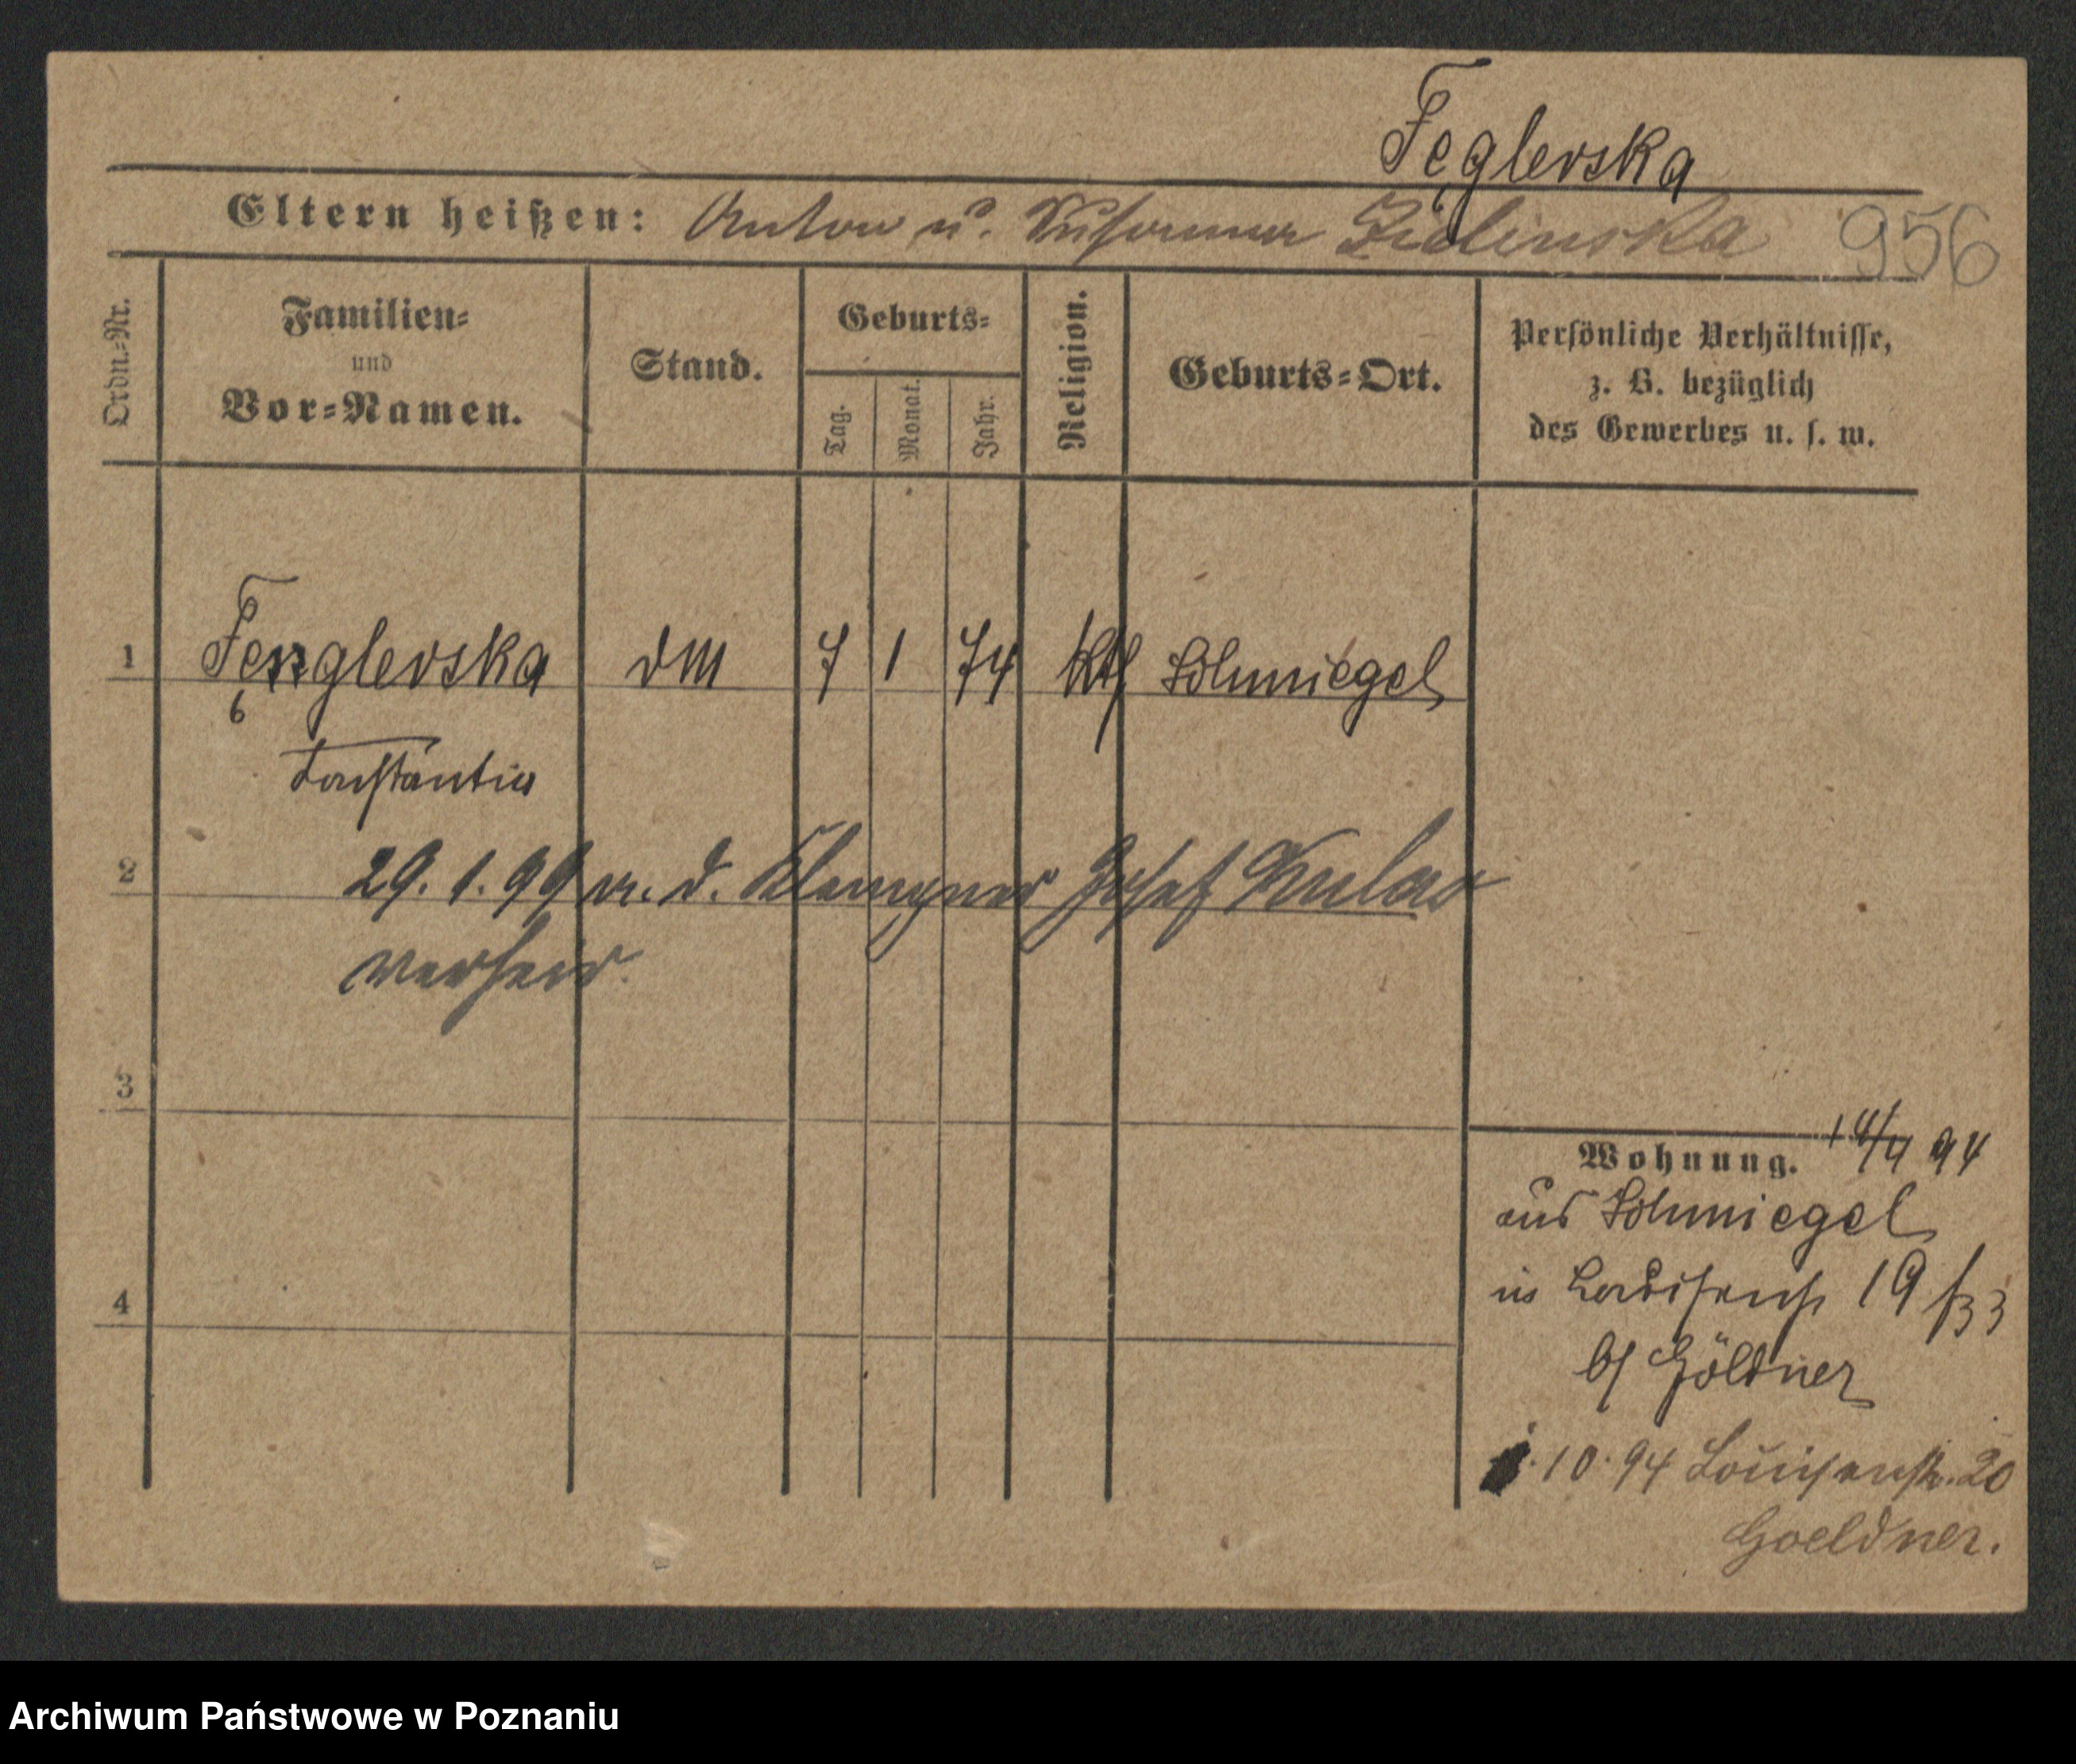 Fęglerska
Eltern heißen: Anton u. Susanna Zielinska 956
Ordn.-Nr.
Familien-
und
Vor-Namen.
Stand.
Geburts-
Tag.
Monat.
Jahr.
Religion.
Geburts-Ort.
Persönliche Verhältnisse,
z. B. bezüglich
des Gewerbes u. s. w.
1 Fenglerska DM 7 1 74 kth Schmiegel
Constantia
2 29.1.99 m. d. Klempner Josef
verheir.
3
4
Wohnung. 14/4 94
aus Schmiegel
in Louisenstr 19
b/ Göldner
.10.94 Louisenstr. 20
Goeldner.
Archiwum Państwowe w Poznaniu